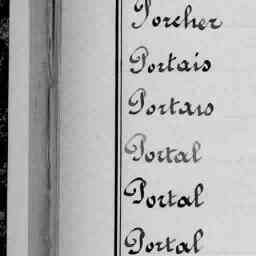 Porcher
Portais
Portais
Portal
Portal
Portal